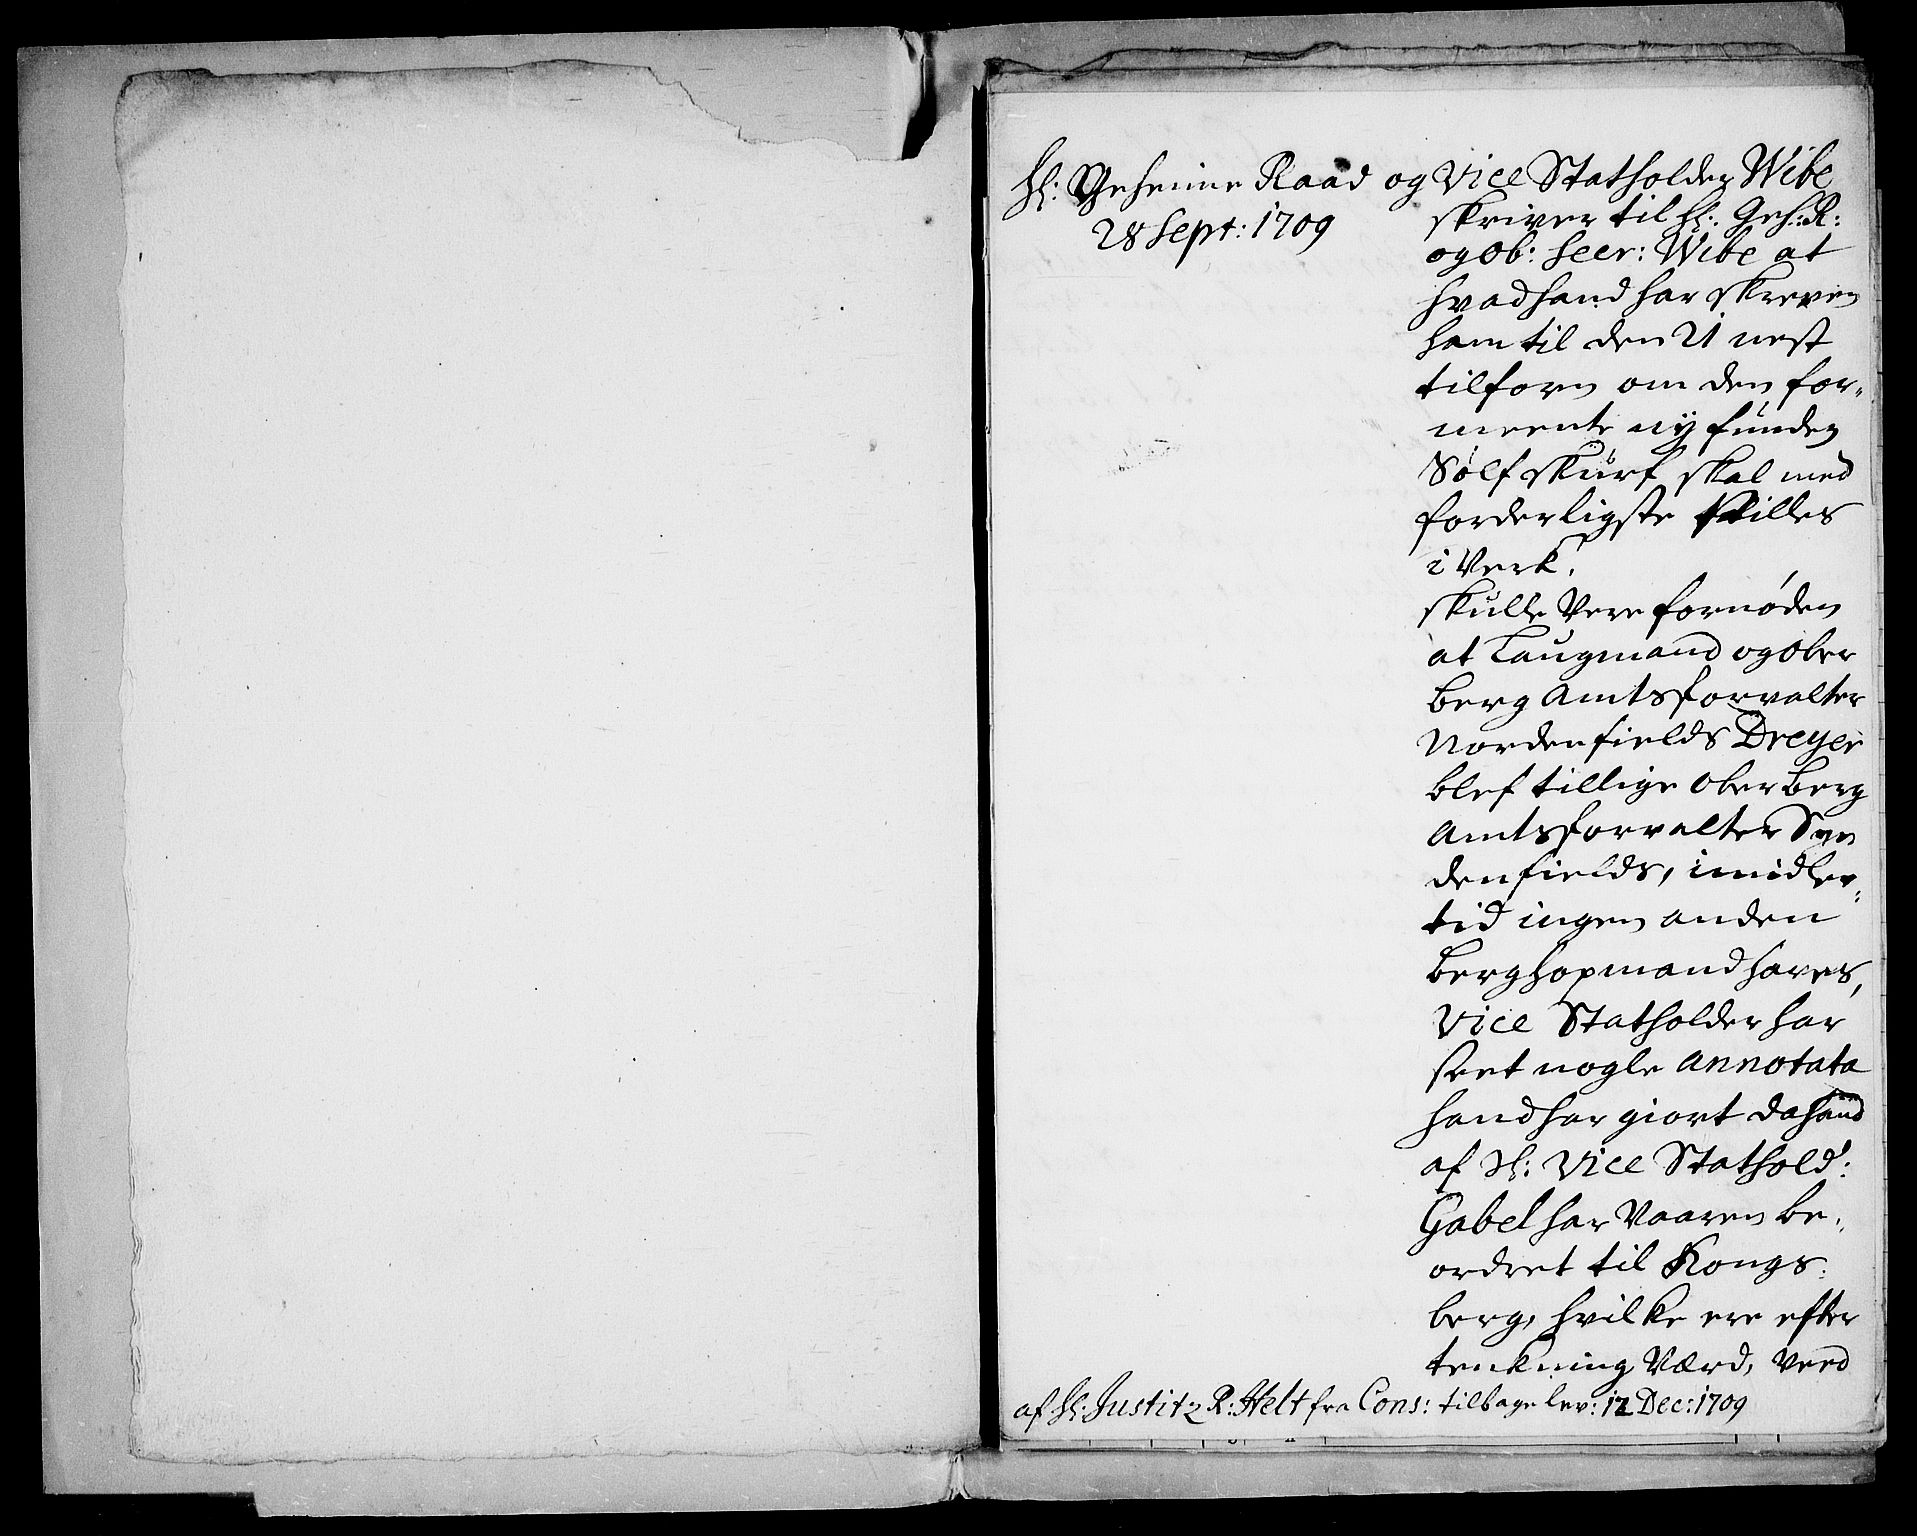 Hl: Geheime Raad og Vice Statholder Wibe
28 Sept: 1709
skriver til Hl: Geh: R:
og Ob: Secr: Wibe at
hvad hand har skreven
ham til den 21 nest
tilforn om den for-
meente ny funden
Sølf skurf skal med
forderligste stilles
i Verk.
skulle Vere fornøden
at Laugmand og Ober
berg Amtsforvalter
Nordenfields Dreyer
blef tillige Ober Berg
Amtsforvalter Syn
denfields, imidler-
tid ingen anden
Berghopmand haves,
Vice Statholder har
seet nogle annotata
hand har giort da hand
af Hl: Vice Stathold:
Gabel har Vaaren be-
ordret til Kongs-
berg, hvilke ere efter
tenkning Værd, Veed
af Hl: Justitz R: Helt fra Cons: tilbage lev: 12 Dec: 1709